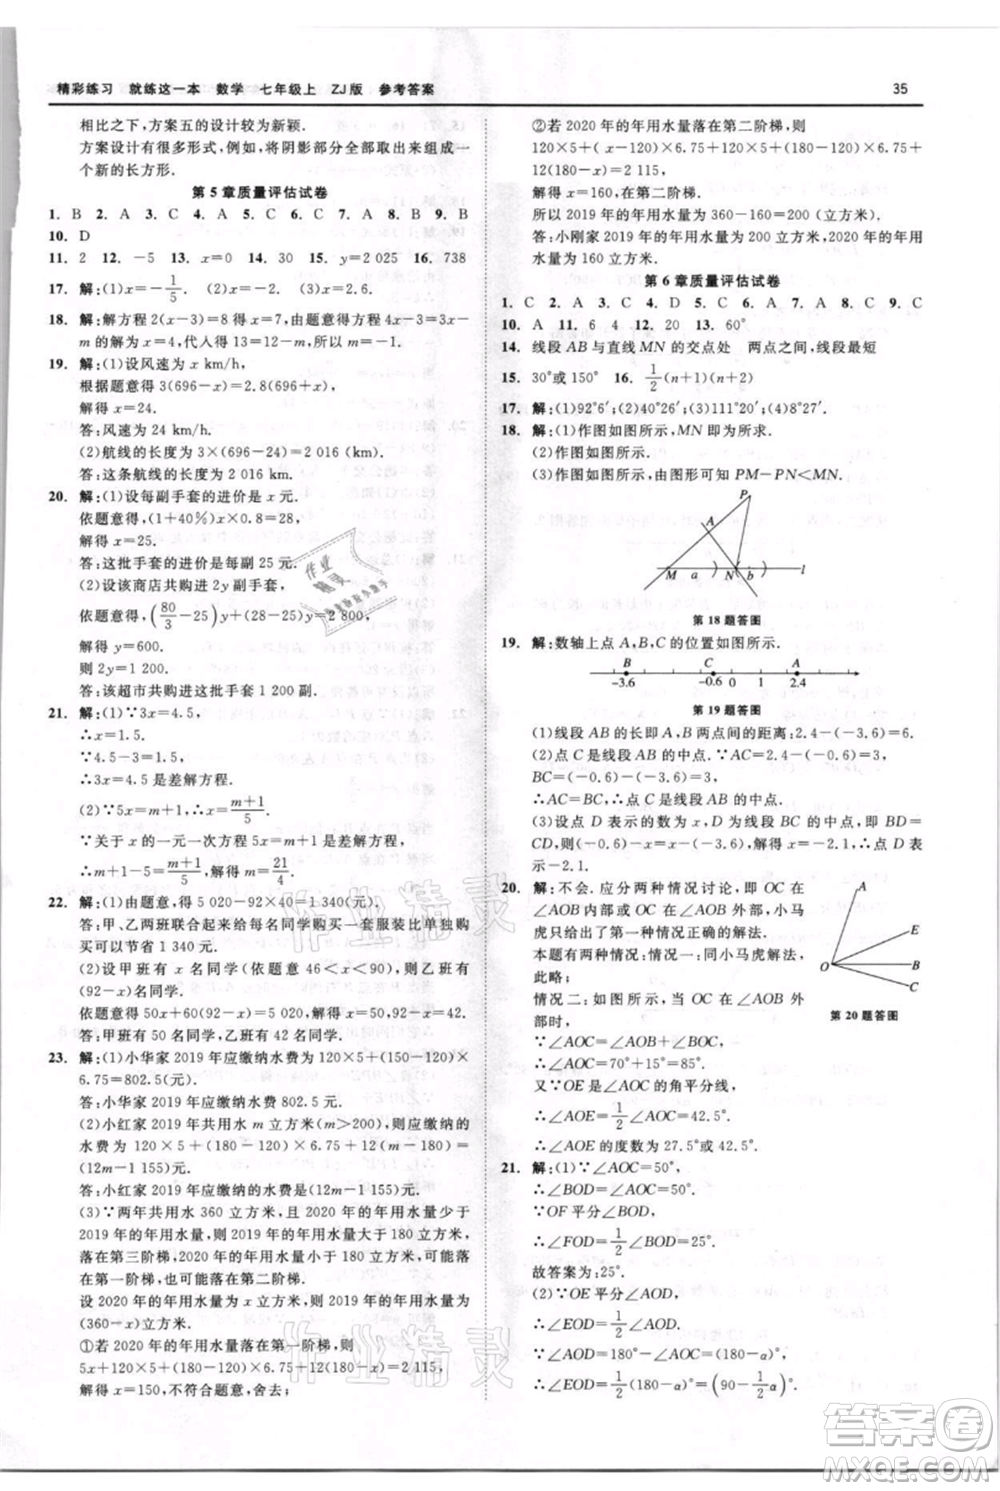 精彩练习 就练这一本 数学 七年级上 ZJ版 参考答案
35
相比之下,方案五的设计较为新颖.
方案设计有很多形式,例如,将阴影部分全部取出来组成一
个新的长方形.
第5章质量评估试卷
1. B 2. A 3. C 4. A 5. C 6. C 7. A 8. B 9. B
10. D
11. 2 12. -5 13. x=0 14. 30 15. y=2 025 16. 738
17. 解:(1)x=-1/5. (2)x=2.6.
18. 解:解方程2(x-3)=8得x=7,由题意得方程4x=3x-
m的解为x=4,代入得m=-1.
19. 解:(1)设风速为x km/h,
根据题意得3(696-x)=2.8(696+x),
解得x=24.
答:风速为24 km/h.
(2)航线的长度为3×(696-24)=2 016(km).
答:这条航线的长度为2 016 km.
20. 解:(1)设每副手套的进价是x元.
依题意得,(1+40%)x×0.8=28,
解得x=25.
答:这批手套的进价是每副25元.
(2)设该商店共购进2y副手套,
依题意得,(80/3-25)y+(28-25)y=2 800,
解得y=600.
则2y=1 200.
答:该超市共购进这批手套1 200副.
21. 解:(1)∵3x=4.5,
∴x=1.5.
∵4.5-3=1.5,
∴3x=4.5是差解方程.
(2)∵5x=m+1,∴x=(m+1)/5.
∵关于x的一元一次方程5x=m+1是差解方程,
∴m+1-5=(m+1)/5,解得m=21/4.
22. 解:(1)由题意,得5 020-92×40=1 340(元).
答:甲、乙两班联合起来给每名同学购买一套服装比单独购
买可以节省1 340元.
(2)设甲班有x名同学(依题意46<x<90),则乙班有
(92-x)名同学.
依题意得50x+60(92-x)=5 020,解得x=50,92-x=42.
答:甲班有50名同学,乙班有42名同学.
23. 解:(1)小华家2019年应缴纳水费为120×5+(150-120)×
6.75=802.5(元).
答:小华家2019年应缴纳水费802.5元.
(2)小红家2019年共用水m立方米(m>200),则应缴纳的
水费为120×5+(180-120)×6.75+12(m-180)=
(12m-1 155)元.
答:小红家2019年应缴纳的水费是(12m-1 155)元.
(3)∵两年共用水360立方米,2019年的年用水量多于
2020年的年用水量,∴2019年的年用水量大于180立方米,
落在第三阶梯,2020年的年用水量小于180立方米,可能落
在第一阶梯,也可能落在第二阶梯.
设2020年的年用水量为x立方米,则2019年的年用水量为
(360-x)立方米.
①若2020年的年用水量落在第一阶梯,则
5x+120×5+(180-120)×6.75+12(180-x)=2 115,
解得x=150,不符合题意,舍去;
②若2020年的年用水量落在第二阶梯,则
120×5+(x-120)×6.75+120×5+(180-120)×6.75+
12(180-x)=2 115,
解得x=160,在第二阶梯.
所以2019年的年用水量为360-160=200(立方米).
答:小刚家2019年的年用水量为200立方米,2020年的年用
水量为160立方米.
第6章质量评估试卷
1. C 2. A 3. C 4. D 5. C 6. A 7. A 8. C 9. C
10. A 11. 6 4 12. 20 13. 60°
14. 线段AB与直线MN的交点处 两点之间,线段最短
15. 30°或150° 16. 1/2(n+1)(n+2)
17. 解:(1)92°6′;(2)40°26′;(3)111°40′;(4)8°27′.
18. 解:(1)作图如图所示,MN即为所求.
(2)作图如图所示.
(3)作图如图所示,由图形可知PM-PN<MN.
P
A
M a N b l
第18题答图
19. 解:数轴上点A,B,C的位置如图所示.
B C A
-3.6 -0.6 0 1 2.4
第19题答图
(1)线段AB的长即A,B两点间的距离:2.4-(-3.6)=6.
(2)点C是线段AB的中点.∵AC=2.4-(-0.6)=3,
BC=(-0.6)-(-3.6)=3,
∴AC=BC.∴点C是线段AB的中点.
(3)设点D表示的数为x,点D为线段BC的中点,∴BD=
CD,∴(-0.6)-x=x-(-3.6),解得x=-2.1,∴点D表
示-2.1.
20. 解:不会.应分两种情况讨论,即OC在
∠AOB内部或OC在∠AOB外部,小马
虎只给出了OC在∠AOB内部的解法,
没有给出OC在∠AOB外部的解法.
本题有两种情况:情况一:同小马虎解法,
此略;
情况二:如图所示,当OC在∠AOB外
部时,
∵∠AOC=∠AOB+∠BOC,
∴∠AOC=70°+15°=85°.
又∵OE是∠AOC的角平分线,
∴∠AOE=1/2∠AOC=42.5°.
∴∠AOE的度数为27.5°或42.5°.
A
E
O B
C
第20题答图
21. 解:(1)∵∠AOC=50°,
∴∠BOD=50°.
∵OF平分∠BOD,
∴∠FOD=1/2∠BOD=25°.
故答案为:25°.
(2)∵OE平分∠AOD,
∴∠EOD=1/2∠AOD.
∵∠AOD=180°-∠AOC=180°-α,
∴∠EOD=1/2(180°-α)=(90-1/2α)°.
作业精灵
作业精灵
答案圈